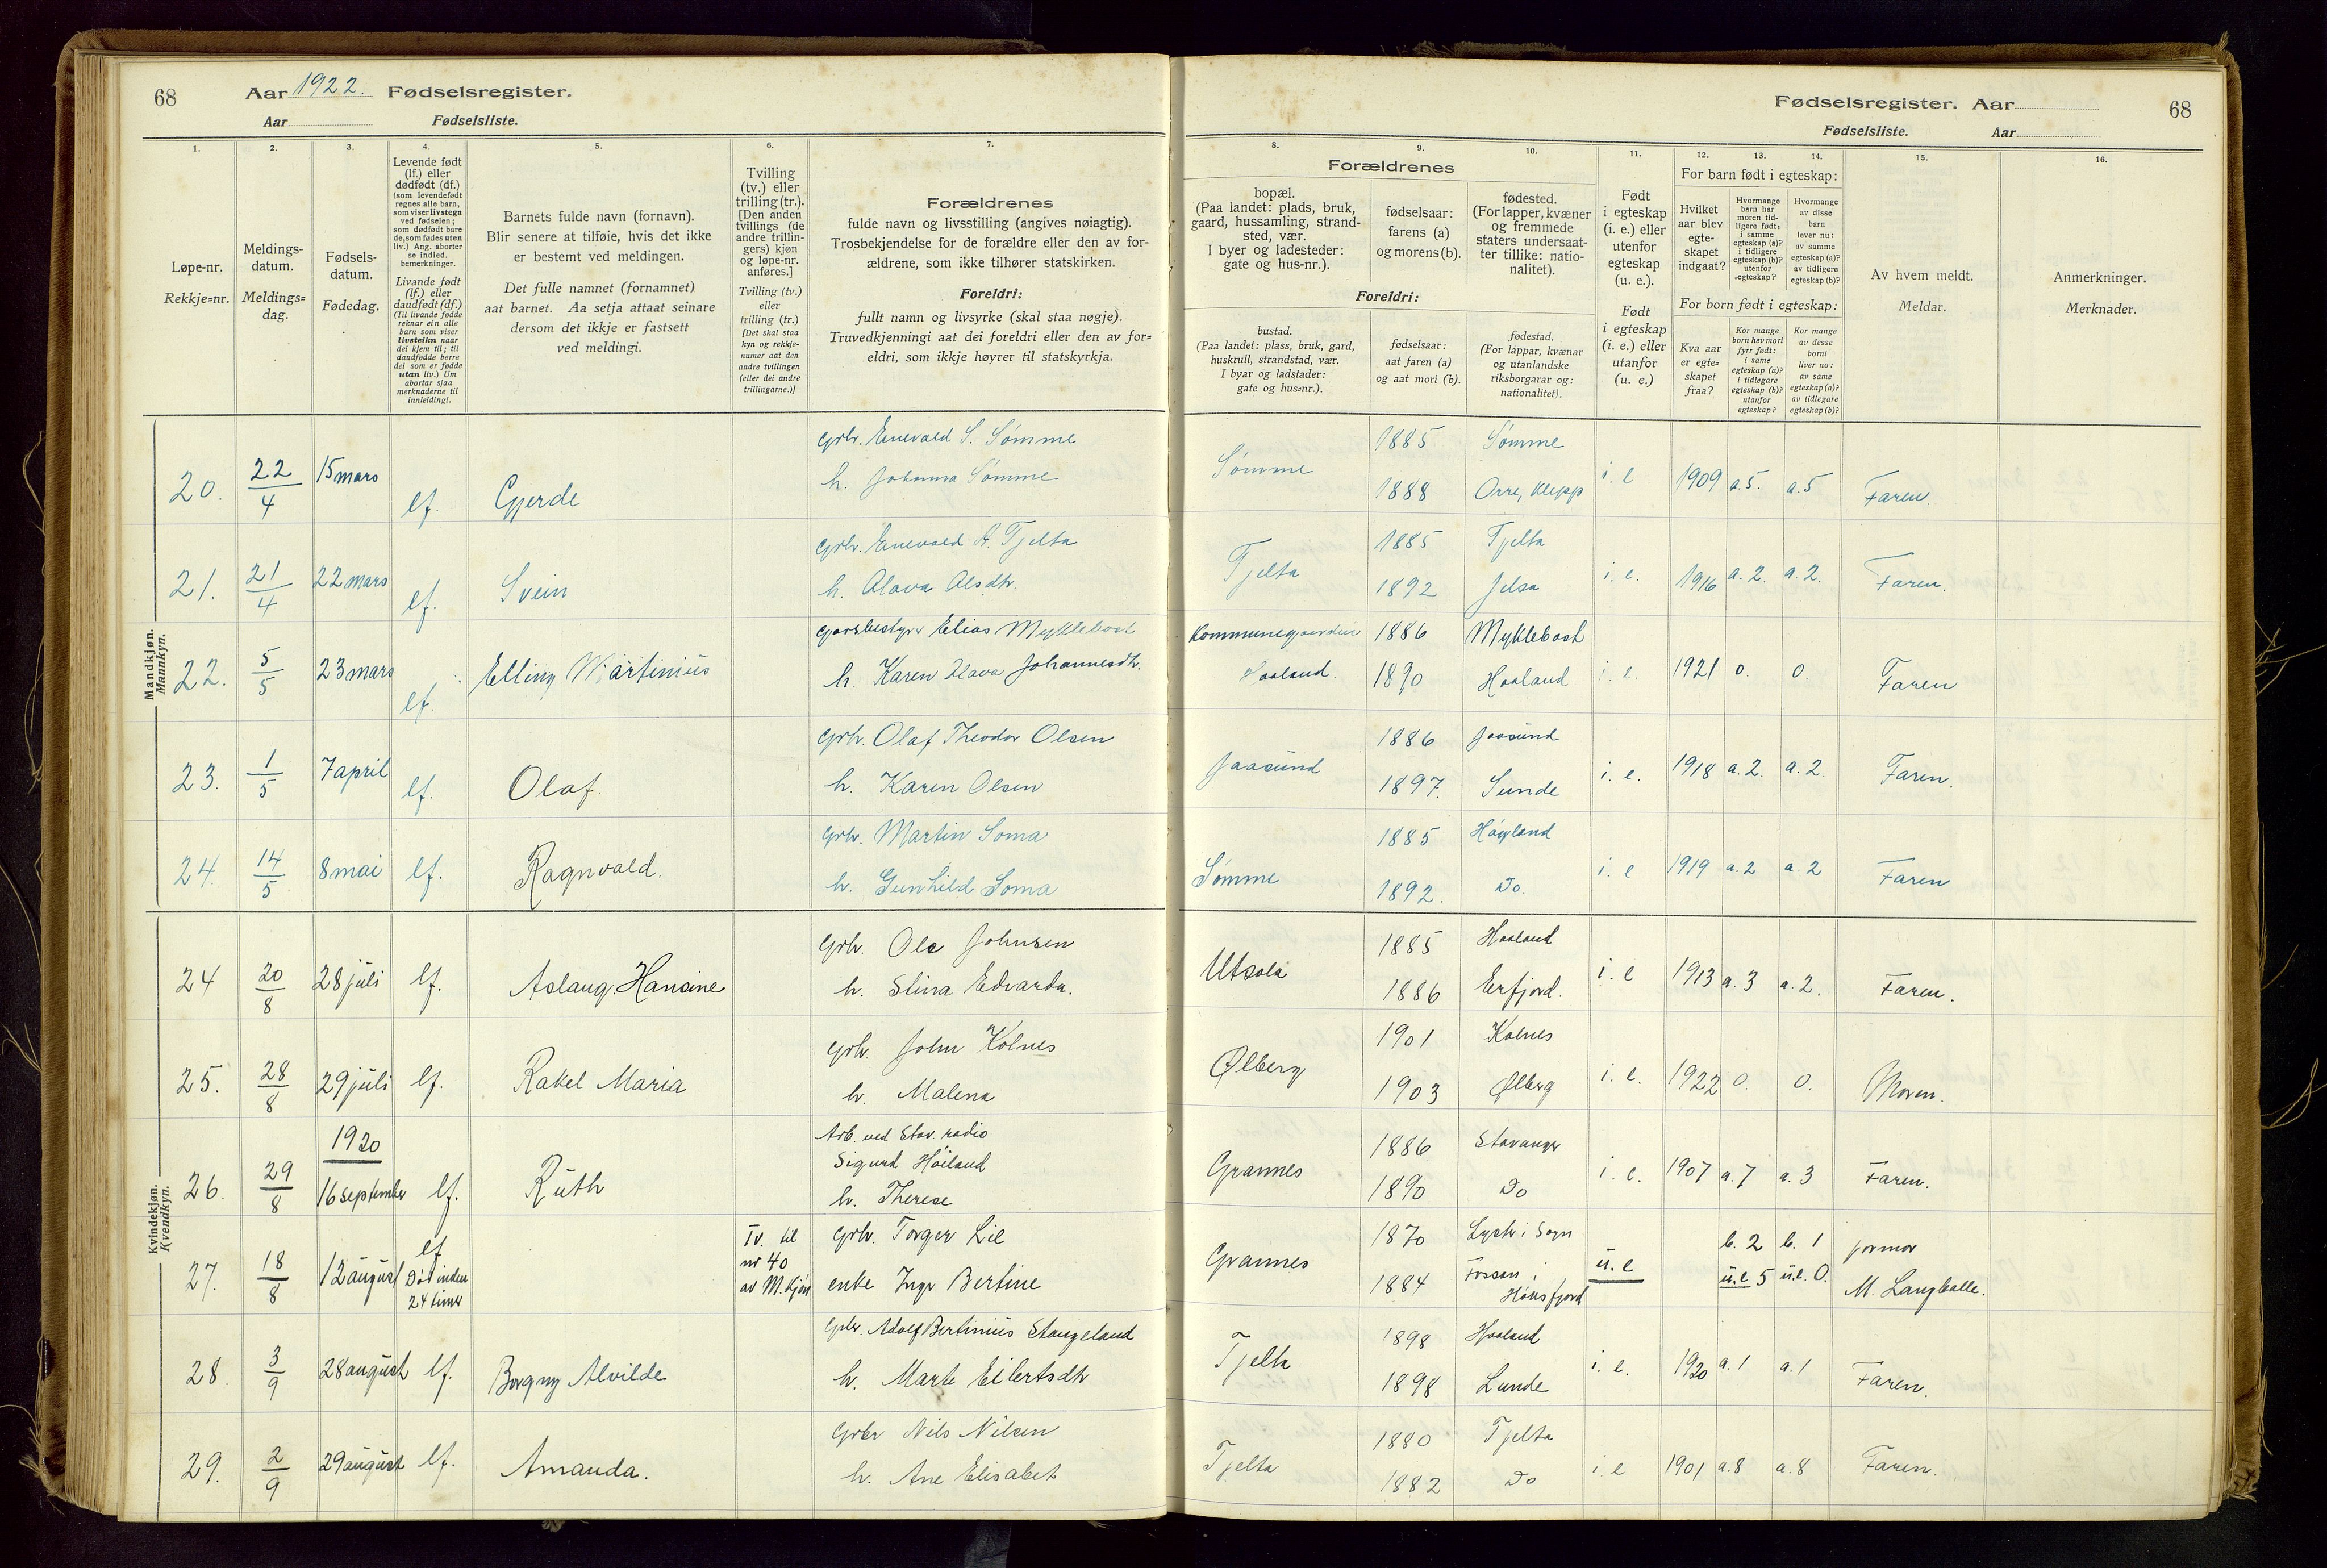 68
Aar 1922. Fødselsregister.
Aar Fødselsliste.
Fødselsregister. Aar
68
Fødselsliste. Aar
1. 2. 3. 4. 5. 6. 7. 8. 9. 10. 11. 12. 13. 14. 15. 16.
Løpe-nr.
Rekkje=nr.
Meldings-
datum.
Meldings=
dag.
Fødsels-
datum.
Fødedag.
Levende født
(lf.) eller
dødfødt (df.)
(som levendefødt
regnes alle barn,
som viser livstegn
ved fødselen;
som dødfødt bare
de, som fødes uten
liv.) Ang. aborter
se indled.
bemerkninger.
Livande født
(lf.) eller
daudfødt (df.)
(Til livande fødde
reknar ein alle
barn som viser
livsteikn naar
dei kjem til; til
daudfødde berre
dei som er fødde
utan liv.) Um
abortar sjaa
merknaderne til
innleidingi.
Barnets fulde navn (fornavn).
Blir senere at tilføie, hvis det ikke
er bestemt ved meldingen.
Det fulle namnet (fornamnet)
aat barnet. Aa setja attaat seinare
dersom det ikkje er fastsett
ved meldingi.
Tvilling
(tv.) eller
trilling (tr.).
[Den anden
tvillings (de
andre trillin-
gers) kjøn
og løpe-nr.
anføres.]
Tvilling (tv.)
eller
trilling (tr.)
[Det skal staa
kyn og rekkje-
numer aat den
andre tvillingen
(eller dei andre
trillingarne.)]
Forældrenes
fulde navn og livsstilling (angives nøiagtig).
Trosbekjendelse for de forældre eller den av for-
ældrene, som ikke tilhører statskirken.
Foreldri:
fullt namn og livsyrke (skal staa nøgje).
Truvedkjenningi aat dei foreldri eller den av for=
eldri, som ikkje høyrer til statskyrkja.
Forældrenes
bopæl.
(Paa landet: plads, bruk,
gaard, hussamling, strand-
sted, vær.
I byer og ladesteder:
gate og hus-nr.).
fødselsaar:
farens (a)
og morens (b).
fødested.
(For lapper, kvæner
og fremmede
staters undersaat-
ter tillike: natio-
nalitet).
Foreldri:
bustad.
(Paa landet: plass, bruk, gard,
huskrull, strandstad, vær.
I byar og ladstader:
gate og hus=nr.).
fødselsaar:
aat faren (a)
og aat mori (b).
fødestad.
(For lappar, kvænar
og utanlandske
riksborgarar og:
nationalitet).
Født
i egteskap
(i. e.) eller
utenfor
egteskap
(u. e.).
Født
i egteskap
(i. e.) eller
utanfor
(u. e.)
For barn født i egteskap:
Hvilket
aar blev
egte-
skapet
indgaat?
Hvormange
barn har
moren tid-
ligere født:
i samme
egteskap (a)?
i tidligere
egteskap (b)?
utenfor
egteskap?
Hvormange
av disse
barn
lever nu:
av samme
egteskap (a)?
av tidligere
egteskap (b)?
For born født i egteskap:
Kva aar
er egte-
skapet
fraa?
Kor mange
born hev mori
fyrr født:
i same
egteskap (a)?
i tidlegare
egteskap (b)?
utanfor
egteskap?
Kor mange
av desse
borni
liver no:
av same
egteskap (a)?
av tidlegare
egteskap (b)?
Av hvem meldt.
Meldar.
Anmerkninger.
Merknader.
Mandkjøn.
Mannkyn.
Grbr. Enevald S. Sømme 1885 Sømme
20. 22/4 15 mars lf. Gjerde h. Johanna Sømme Sømme 1888 Orre, Klepp i. e 1909 a. 5. a. 5 Faren.
Grbr. Enevald A. Tjelta 1885 Tjelta
21. 21/4 22 mars lf. Svein h. Olava Olsdtr. Tjelta 1892 Jelsa i. e. 1916 a. 2. a. 2. Faren.
Gaardbestyr Elias Myklebost Kommunegaarden 1886 Myklebost
22. 5/5 23 mars lf. Elling Martinius h. Karen Olava Johannesdtr. Haaland. 1890 Haaland i. e. 1921 0. 0. Faren
Grbr. Olaf Theodor Olsen 1886 Jaasund
23. 1/5 7 april lf. Olaf. h. Karen Olsen Jaasund 1897. Sunde i. e. 1918 a. 2. a. 2. Faren.
Grbr. Martin Soma 1885 Høyland
24. 14/5 8 mai lf. Ragnvald. h. Gunhild Soma Sømme 1892. Do. i. e 1919 a. 2 a. 2 Faren
Kvindekjøn.
Kvendkyn.
Grbr. Ole Johnsen 1885 Haaland
24 20/8 28 juli lf. Aslaug Hansine h. Stina Edvarda. Utsola 1886 Erfjord. i. e 1913 a. 3 a. 2. Faren.
Grbr. John Kolnes 1901 Kolnes
25. 28/8 29 juli lf. Rakel Maria h. Malena Ølberg 1903 Ølberg i. e. 1922 0. 0. Moren.
1920 Arb. ved Stav. radio 1886 Stavanger
Sigurd Høiland
26. 29/8 16 september lf. Ruth h. Therese Grannes 1890 Do i. e. 1907 a. 7 a. 3 Faren.
lf Tv. til Grbr. Torger Lie 1870 Lyster i Sogn b. 2 b. 1 jormor
27. 18/8 12 august Død inden nr 40 enke Inger Bertine Grannes 1884 Fossan i u. e u.e 5 u.e. 0. M. Langballe.
24 timer av M.kjøn Høsfjord
Grbr. Adolf Bertinius Stangeland 1898 Haaland
28. 3/9 28 august lf. Borgny Alvilde h. Marte Eilertsdtr Tjelta 1898 Lunde i. e. 1920 a. 1 a. 1 Faren.
Grbr Nils Nilsen 1880 Tjelta
29. 2/9 29 august lf. Amanda. h. Ane Elisabet Tjelta 1882 Do i. e 1901 a. 8 a. 8 Faren.